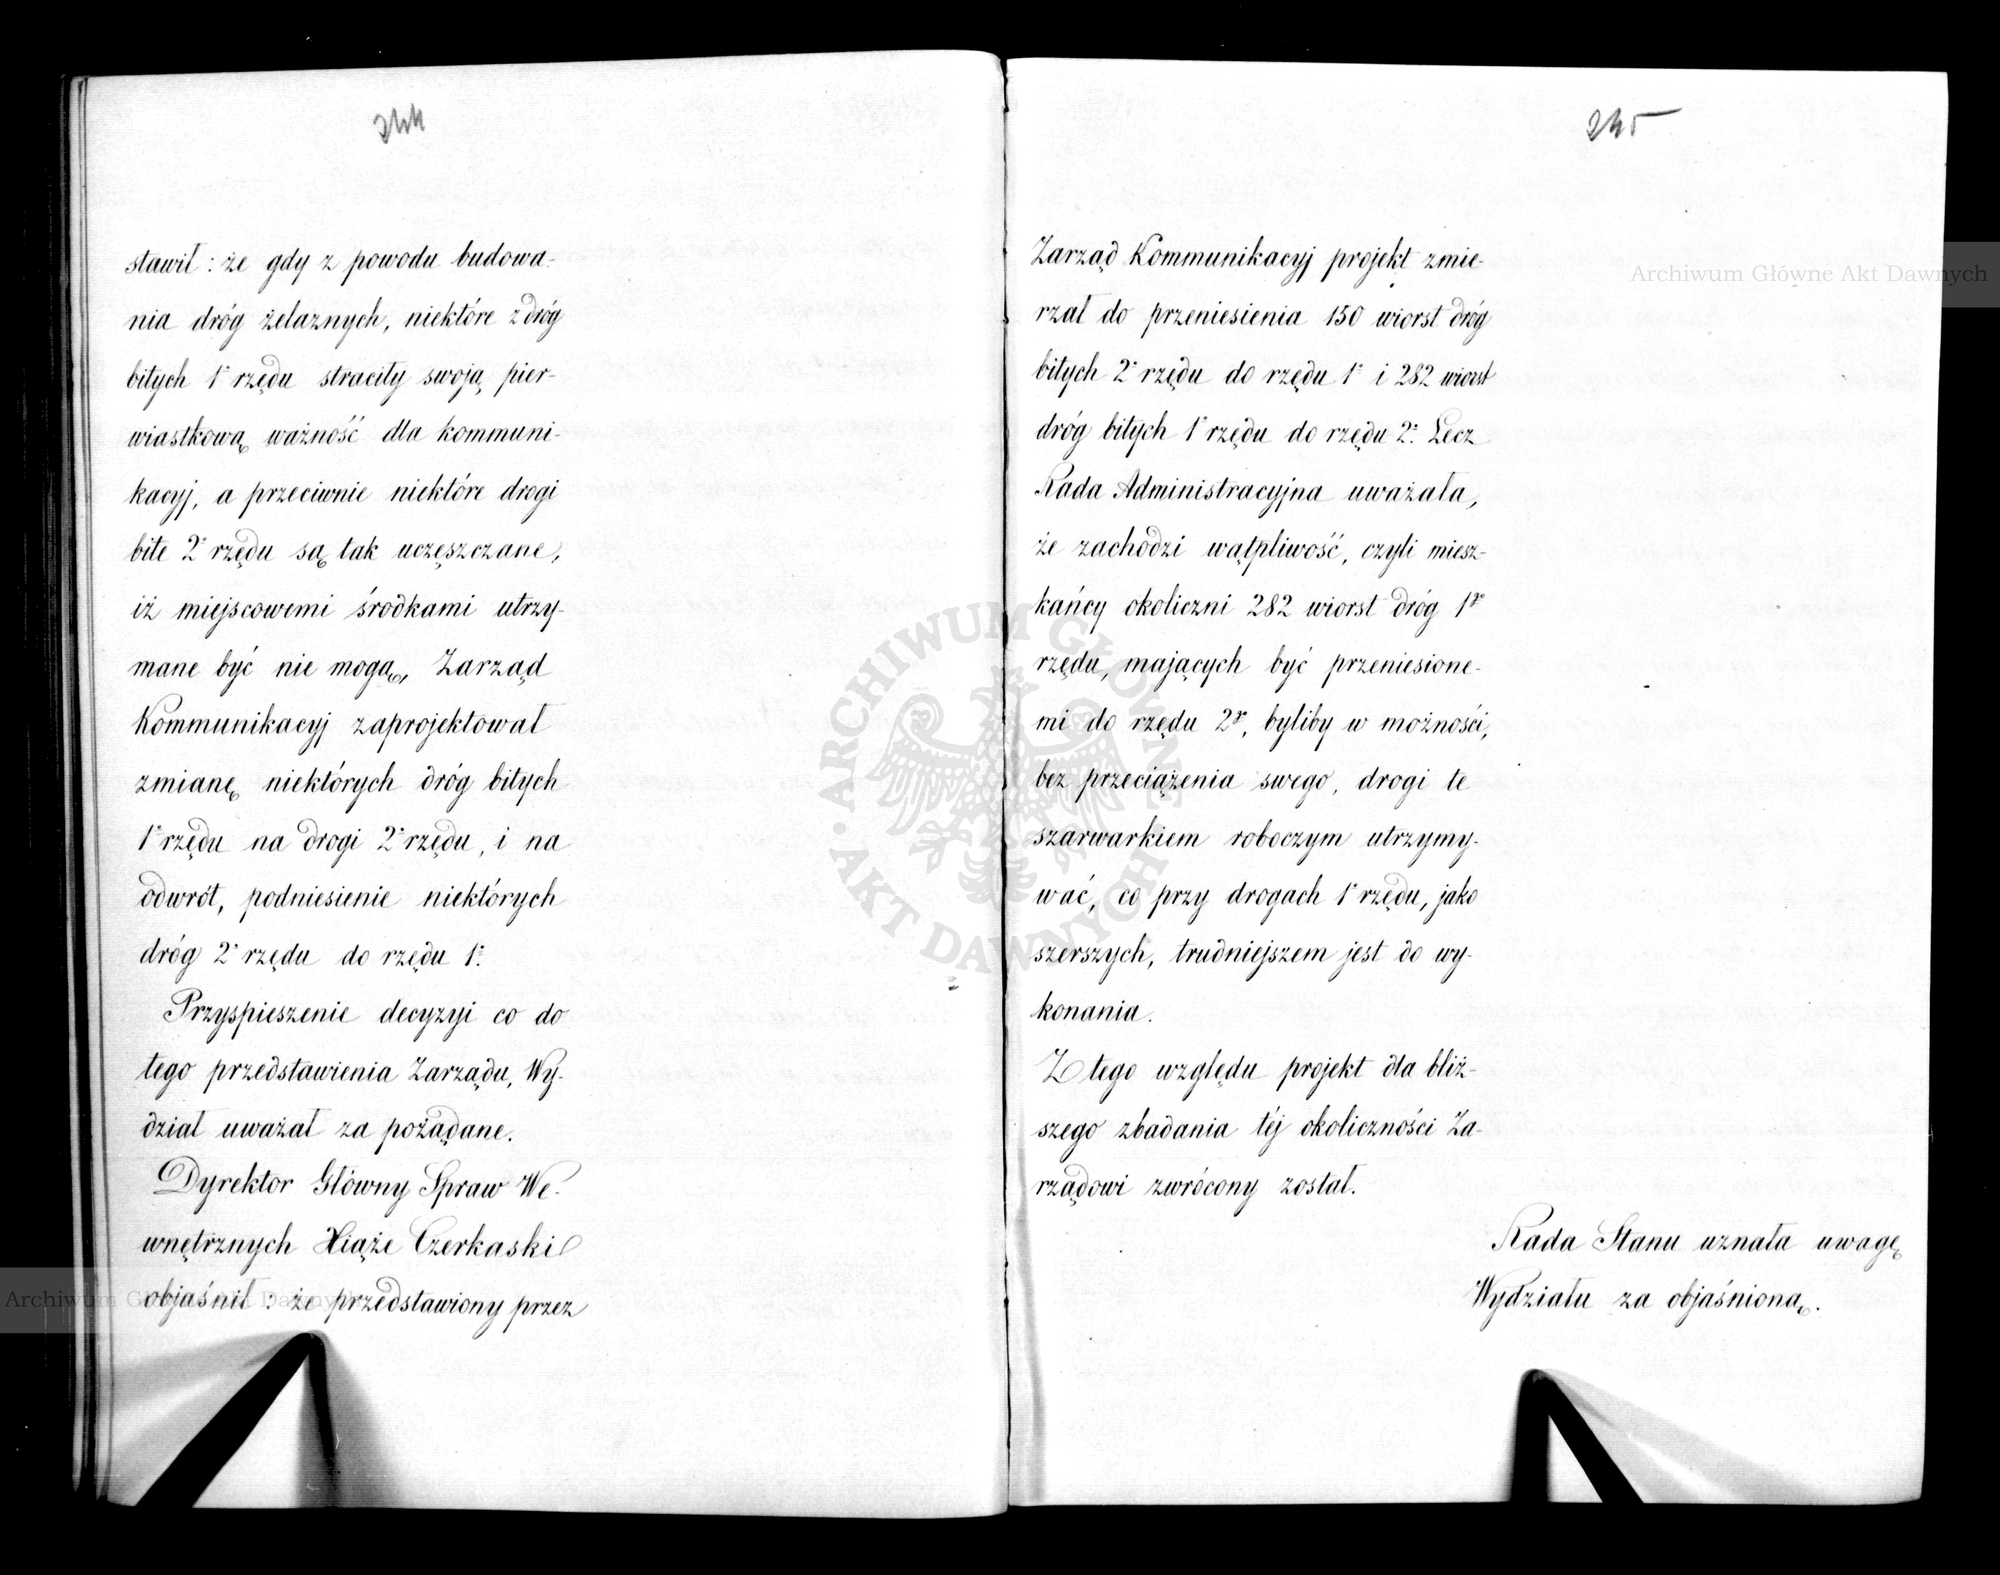 244
stawił: że gdy z powodu budowa-
nia dróg żelaznych, niektóre z dróg
bitych 1º rzędu straciły swoją pier-
wiastkową ważność dla kommuni-
kacyj, a przeciwnie niektóre drogi
bite 2º rzędu są tak uczęszczane,
iż miejscowemi środkami utrzy-
mane być nie mogą, Zarząd
Kommunikacyj zaprojektował
zmianę niektórych dróg bitych
1º rzędu na drogi 2º rzędu, i na
odwrót, podniesienie niektórych
dróg 2º rzędu do rzędu 1º.
Przyspieszenie decyzyi co do
tego przedstawienia Zarządu, Wy-
dział uważał za pożądane.
Dyrektor Główny Spraw We-
wnętrznych Xiąże Czerkaski
objaśnił: że przedstawiony przez
245
Zarząd Kommunikacyj projekt zmie-
rzał do przeniesienia 150 wiorst dróg
bitych 2º rzędu do rzędu 1º i 282 wiorst
dróg bitych 1º rzędu do rzędu 2º. Lecz
Rada Administracyjna uważała,
że zachodzi wątpliwość, czyli miesz-
kańcy okoliczni 282 wiorst dróg 1go
rzędu, mających być przeniesione-
mi do rzędu 2go, byliby w możności,
bez przeciążenia swego, drogi te
szarwarkiem roboczym utrzymy-
wać, co przy drogach 1º rzędu, jako
szerszych, trudniejszem jest do wy-
konania.
Z tego względu projekt dla bliż-
szego zbadania téj okoliczności Za-
rządowi zwrócony został.
Rada Stanu uznała uwagę
Wydziału za objaśnioną.
Archiwum Główne Akt Dawnych
ARCHIWUM GŁÓWNE
AKT DAWNYCH
Archiwum Główne Akt Dawnych